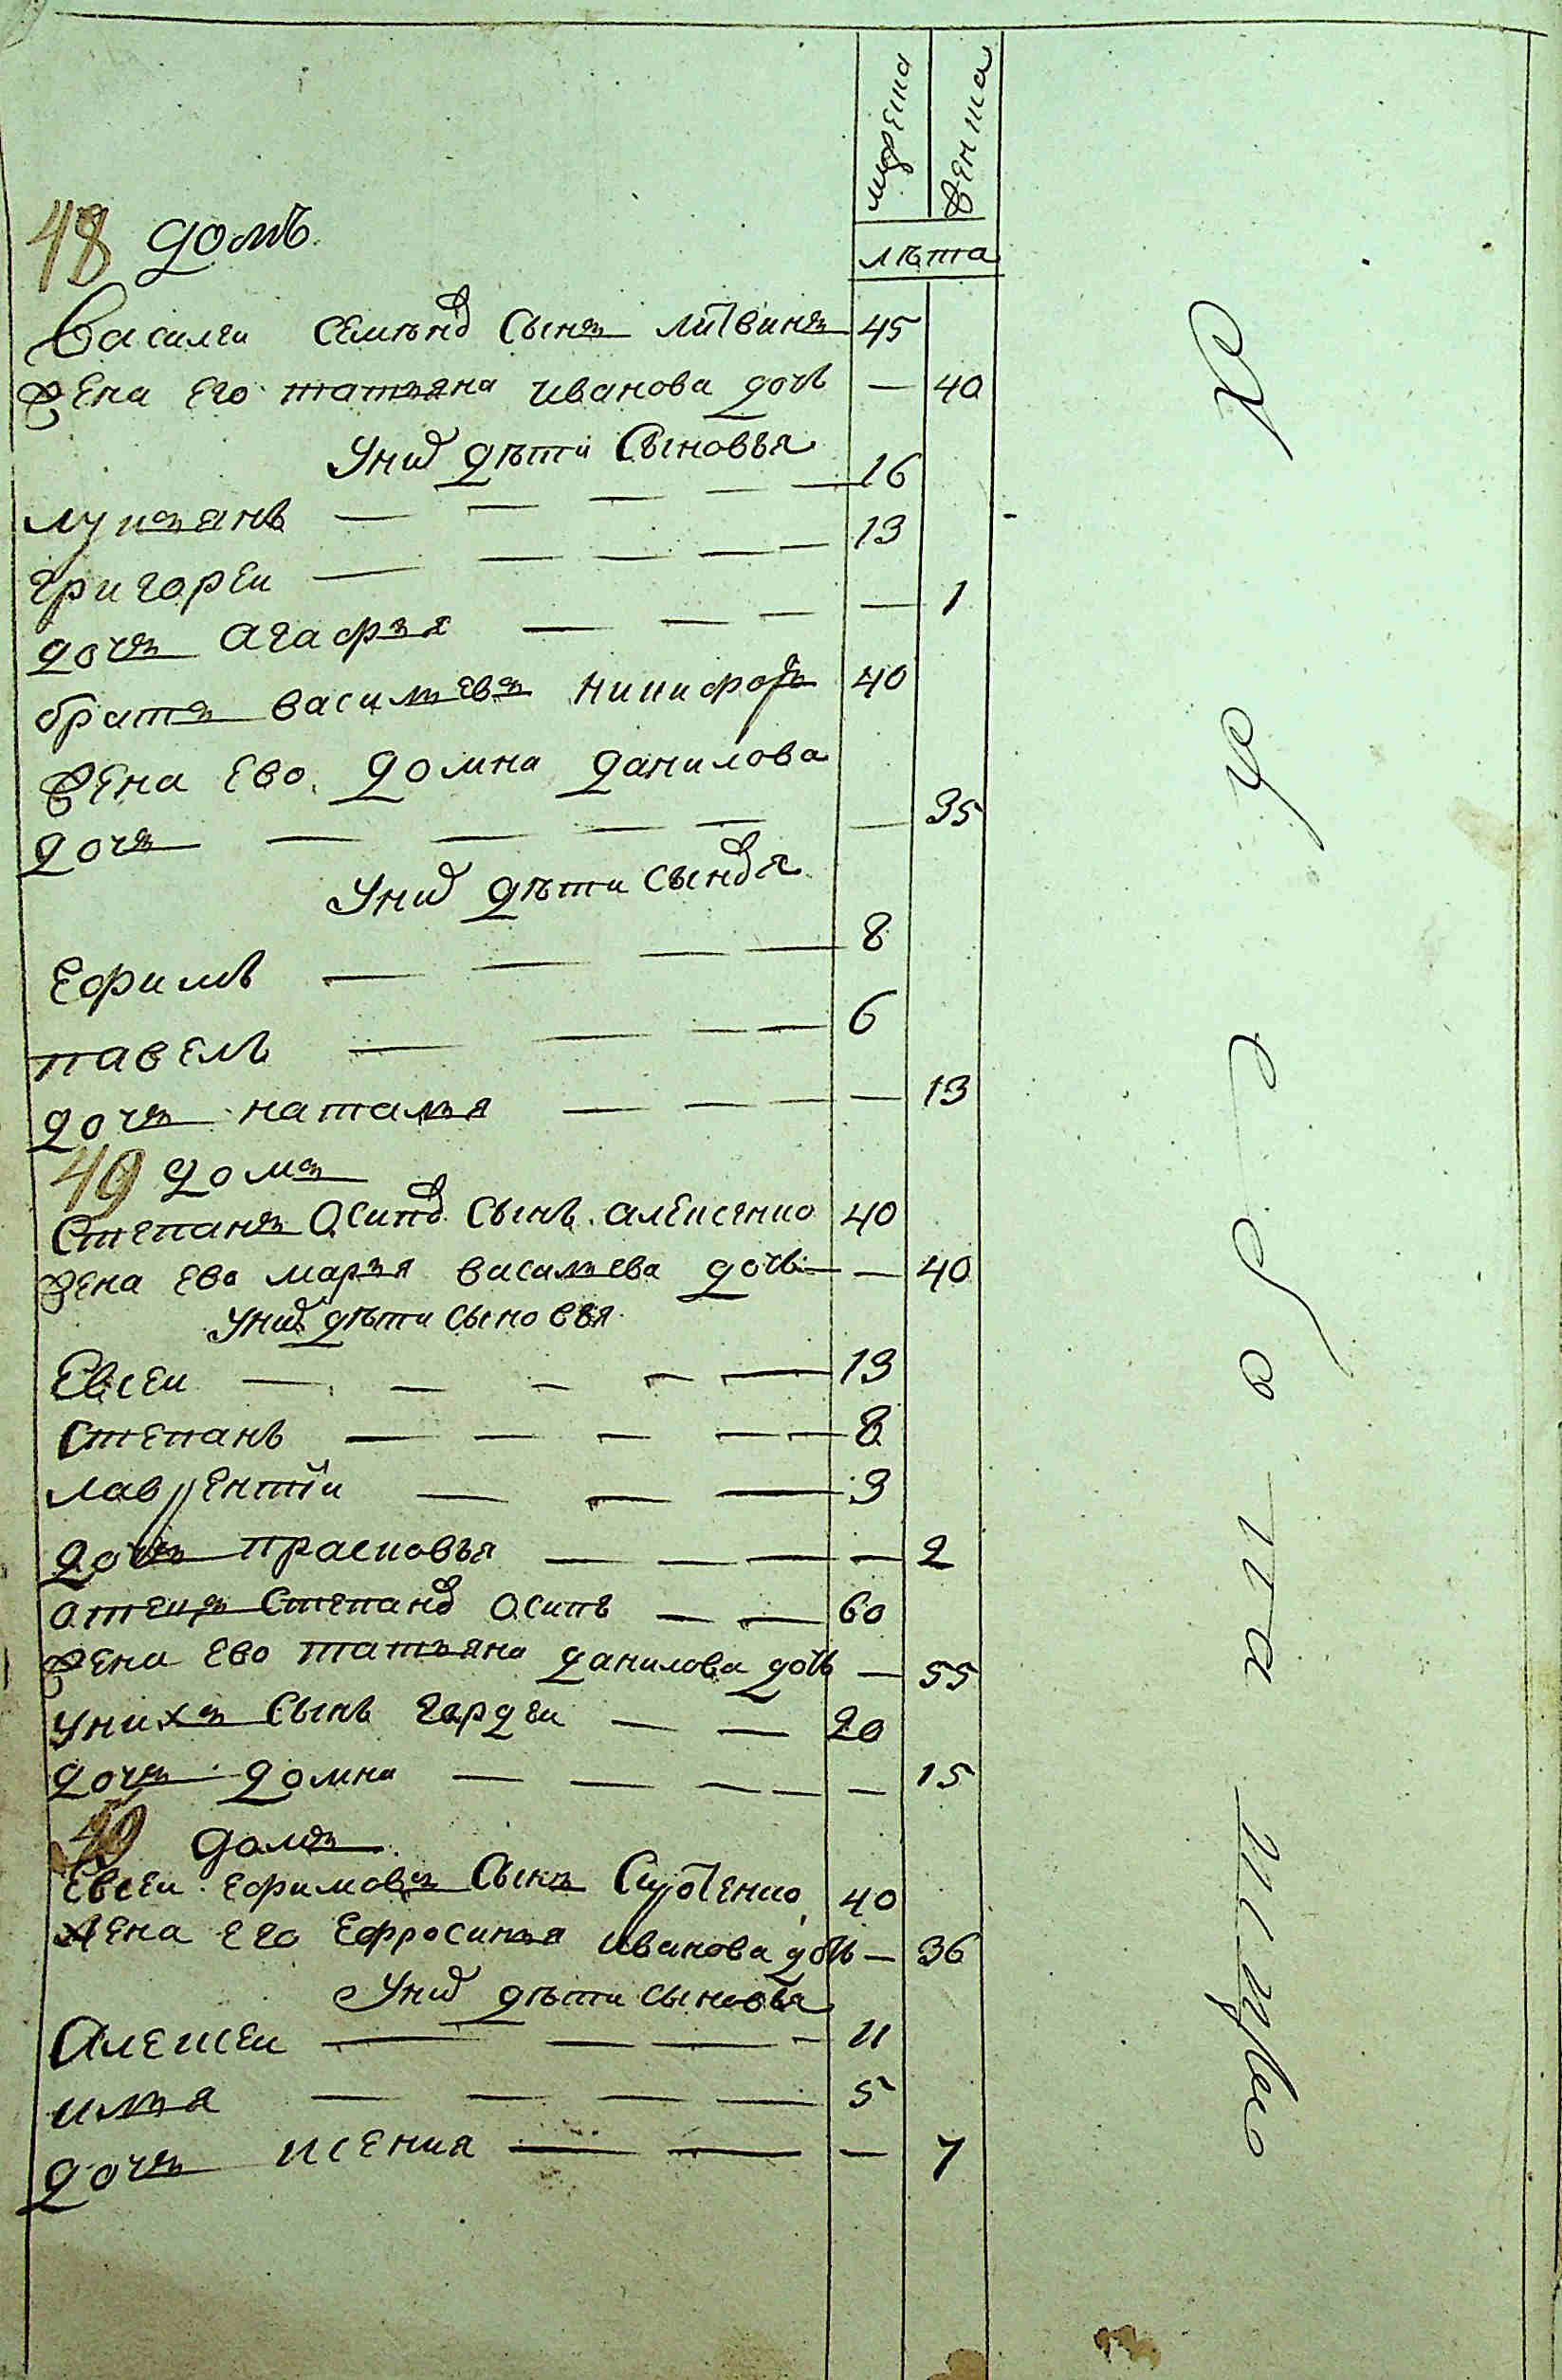 мужеска женска
лѣта
48 домъ
Василеи Семѣновъ Сынъ литвинъ 45
жена Его татьяна иванова дочь — 40
У них дѣти Сыновья
лукьянъ — — — — — 16
григореи — — — — — 13
дочь агафья — — — — 1
братъ васильевъ никифоръ 40
жена Ево домна данилова
дочь — — — — — — 35
У них дѣти сыновья
Ефимъ — — — — 8
павелъ — — — — 6
дочь наталья — — — — 13
49 домъ
Степанъ Осиповъ Сынъ алексенко 40
жена Ево марья васильева дочь — — 40
У них дѣти сыновья
Евсеи — — — — — 13
Степанъ — — — — — 8
лаврентіи — — — 3
дочь прасковья — — — — 2
отецъ Степановъ Осипъ — — 60
жена Ево татьяна данилова дочь — 55
У нихъ Сынъ гардеи — — 20
дочь домна — — — — — 15
домъ
Евсеи Ефимовъ Сынъ 40
жена Его Ефросинья иванова дочь — 36
У них дѣти сыновья
Алексеи — — — — 11
илья — — — — 5
дочь ксения — — — 7